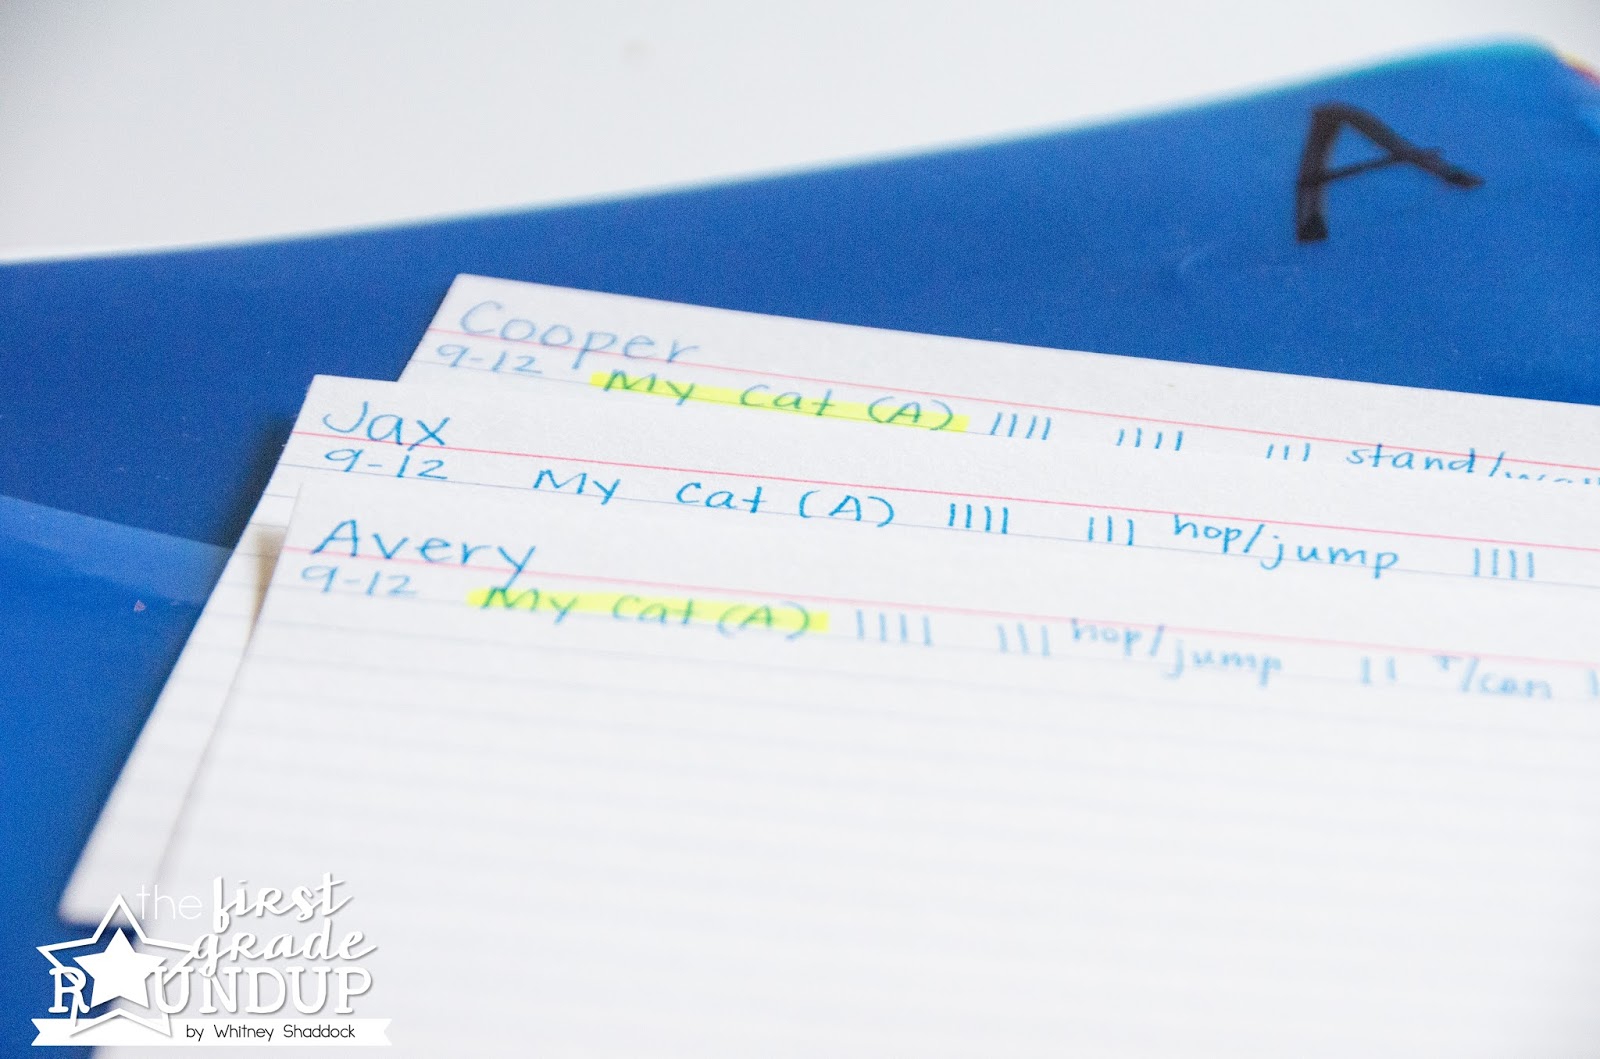 A
Cooper
9-12 My Cat (A) |||| |||| ||| stand/
Jax
9-12 My Cat (A) |||| ||| hop/jump ||||
Avery
9-12 My Cat (A) |||| ||| hop/jump || /can |
the first
grade
ROUNDUP
by Whitney Shaddock